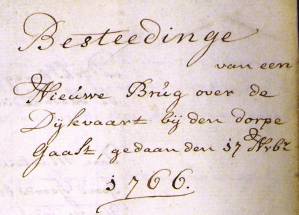 Besteedinge
van een
Nieuwe Brug over de
Dykvaart bij den dorpe
Gaast, gedaan den 17 9vbr
1766.